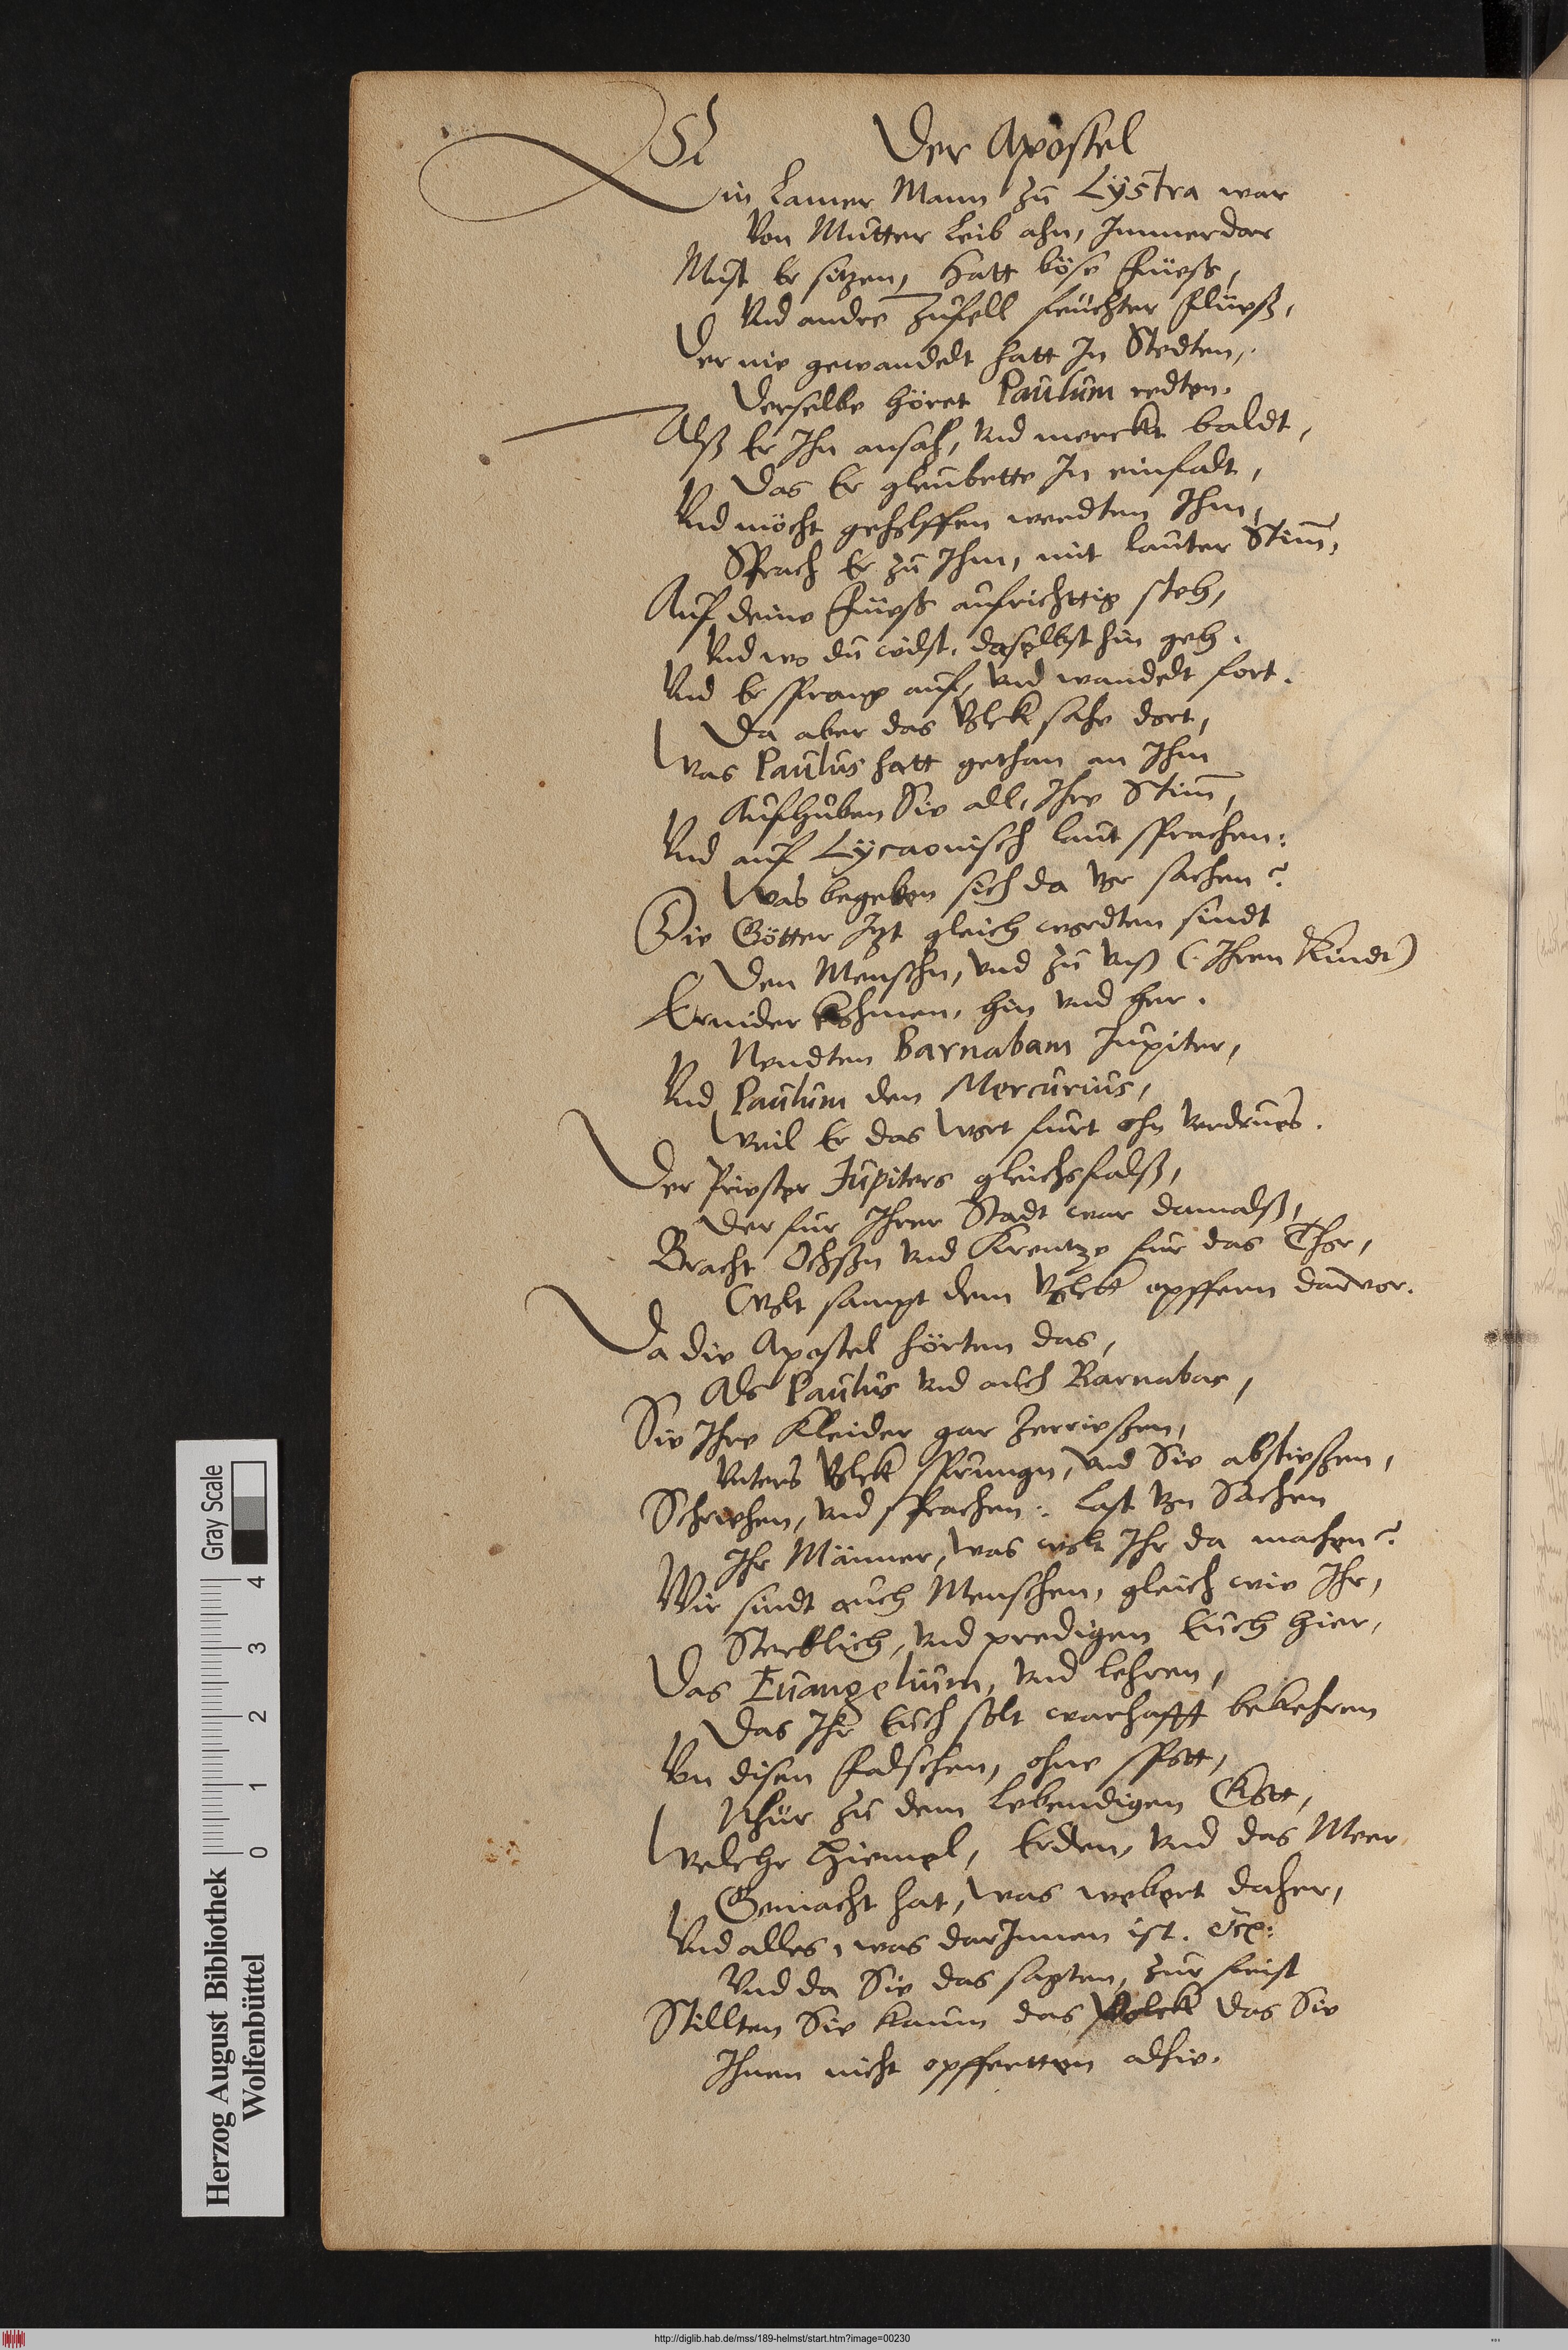 Der Apostel
Ein Lamer Mann zu Lÿstra war
Von Mutter Leib ahn, Immerdar
Must Er sitzen, Hatt böse Füeß,
Vnd andre Zufell feuchter Flüeß,
Der nie gewandelt hatt In Stedten,
Derselbe höret Paulum redten.
Alß Er Ihn ansah, Vnd merckt baldt,
Das Er gleubette In einfalt,
Vnd möcht geholffen werdten Ihm,
Sprach Er zu Ihm, mit lauter Stim̄,
Auf deine Füeß aufrichttig steh,
Vnd wo du wilst, daselbst hin geh.
Vnd Er sprang auf, Vnd wandelt fort.
Da aber das Volck sahe dort,
Was Paulus hatt gethan an Ihm
Aufhuben Sie all, Ihre Stim̄,
Vnd auf Lÿcaonisch laut sprachen:
Was begeben sich da vor sachen?
Die Götter Izt gleich wordten sindt
Den Menschn, vnd zu vnß (Ihren Kindt)
Ernider kohmen, hin vnd her.
Nendten Barnabam Jupiter,
Vnd Paulum den Mercurius,
Weil Er das Wort furt ohn Verdrues.
Der Priester Jupiters gleichsfalß,
Der fur Ihrer Stadt war damalß,
Bracht Ochßn Vnd Krentze fur das Thor,
Wolt sampt dem Volck opffern darvor.
Da die Apostel hörten das,
Als Paulus Vnd auch Barnabas,
Sie Ihre Kleider gar Zerrießen,
Vnters Volck sprungn, Vnd Sie abstießen,
Schriehen, Vnd sprachen: Last von Sachen
Ihr Männer, was wolt Ihr da machen?
Wir sindt auch Menschen, gleich wie Ihr,
Sterblich, Vnd predigen Euch hier,
Das Euangelium, Vnd lehren,
Das Ihr Euch solt warhafft bekehren
Von disen Falschen, ohne spott,
Nhur zu dem Lebendigen Gott,
Welcher Himmel, Erden, Vnd das Meer
Gemacht hat, was webert daher,
Vnd alles, was darInnen ist. Etc:
Vnd da Sie das sagten, zur frist
Stillten Sie kaum das Volck das Sie
Ihnen nicht opffertten alhie.
Herzog August Bibliothek
Wolfenbüttel
0 1 2 3 4
Gray Scale
http://diglib.hab.de/mss/189-helmst/start.htm?image=00230